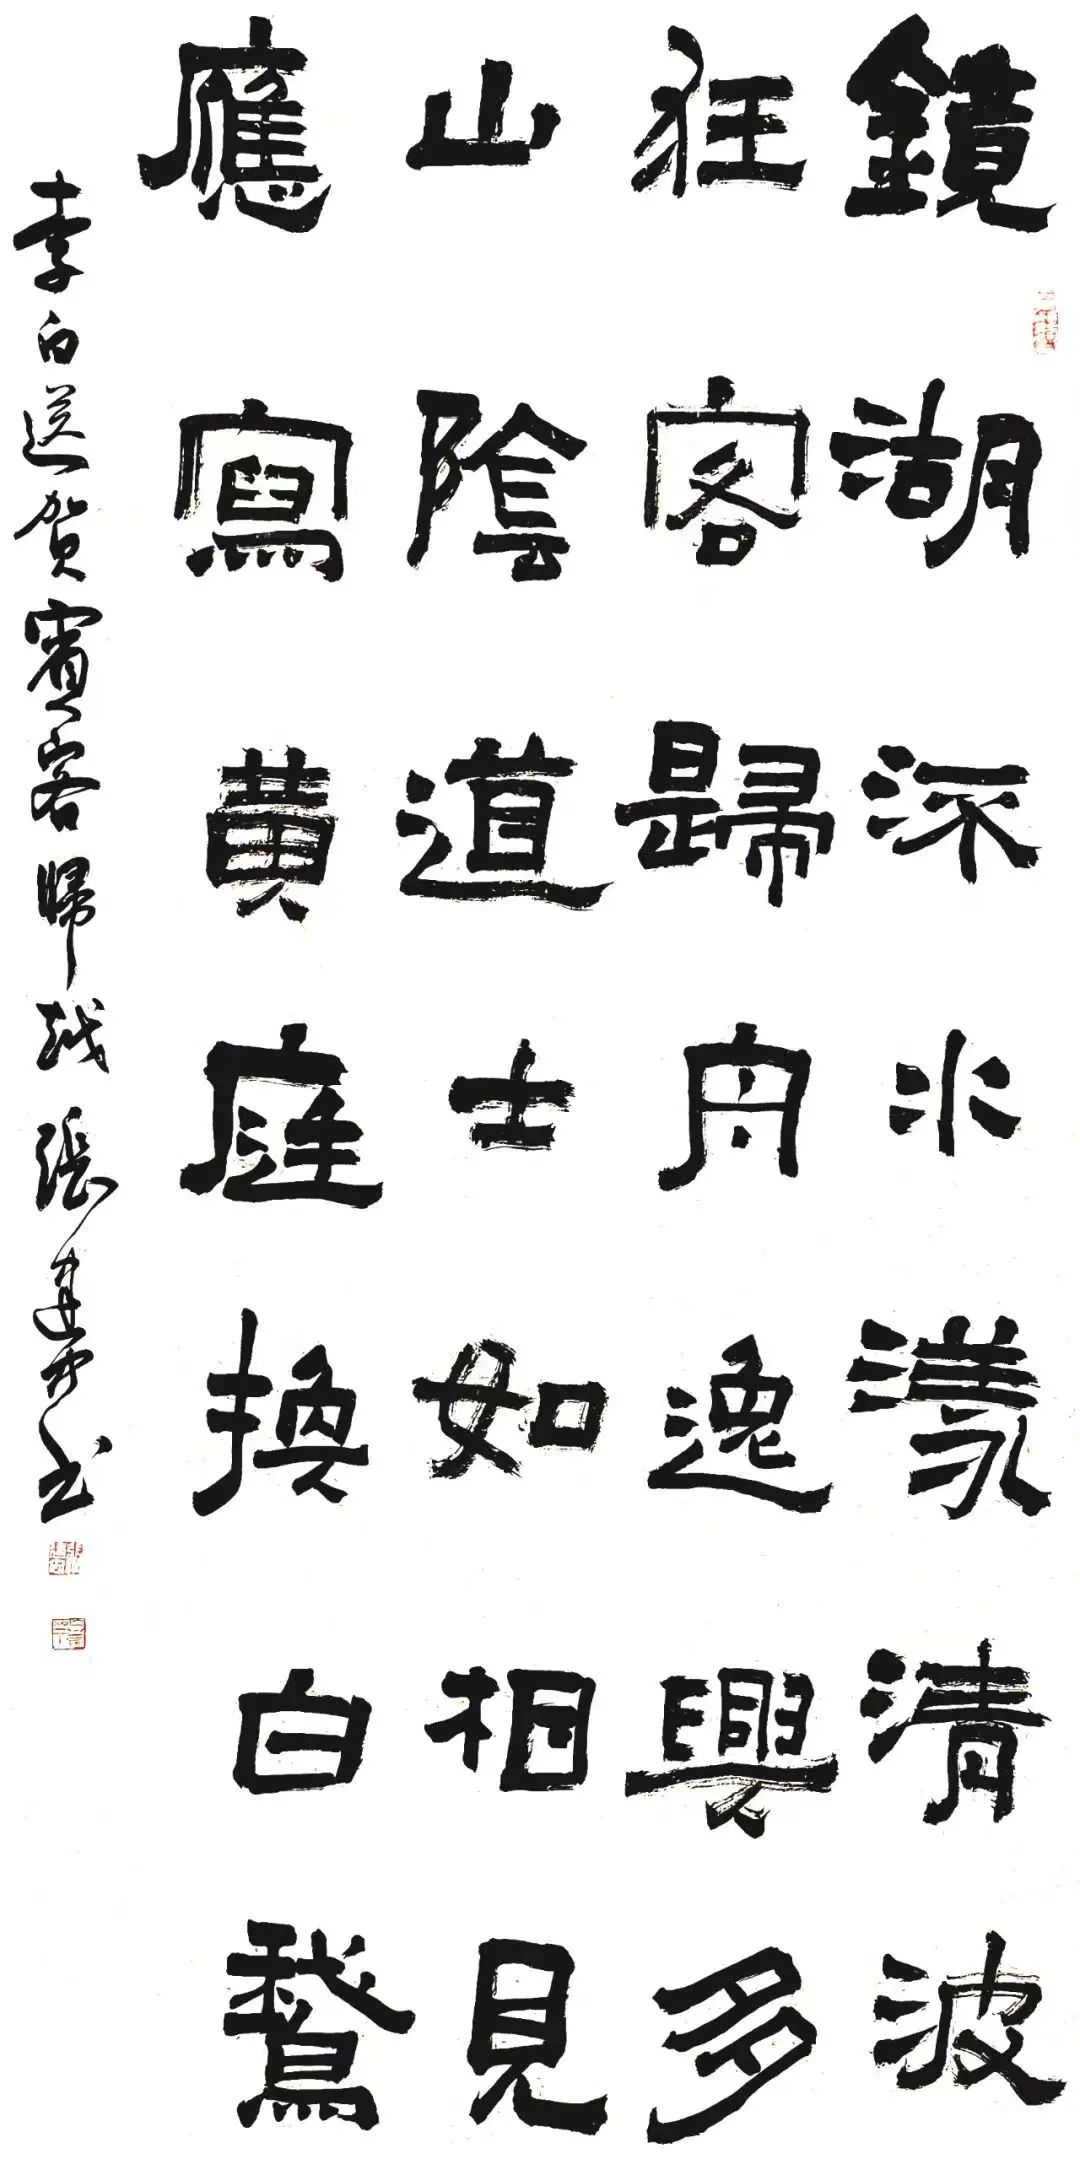 鏡湖流水漾清波
狂客歸舟逸興多
山陰道士如相見
應寫黄庭換白鵝
李白送贺賓客歸越 張建才书